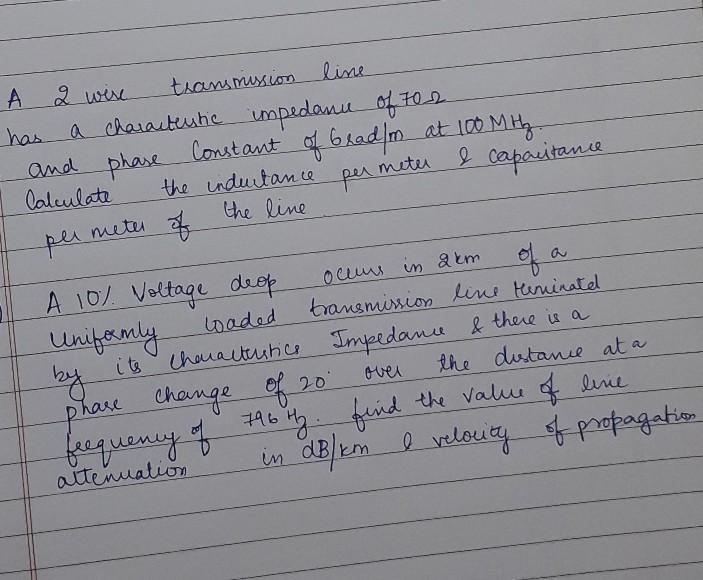 A 2 wire transmission line
has a characteristic impedance of 70 Ω
and phase Constant of 6 rad/m at 100 MHz.
Calculate the inductance per meter & capacitance
per meter of the line
A 10% Voltage drop occurs in 2km of a
Uniformly loaded transmission line terminated
by its characteristics Impedance & there is a
phase change of 20° over the distance at a
frequency of 796 Hz. find the value of line
attenuation in dB/km & velocity of propagation